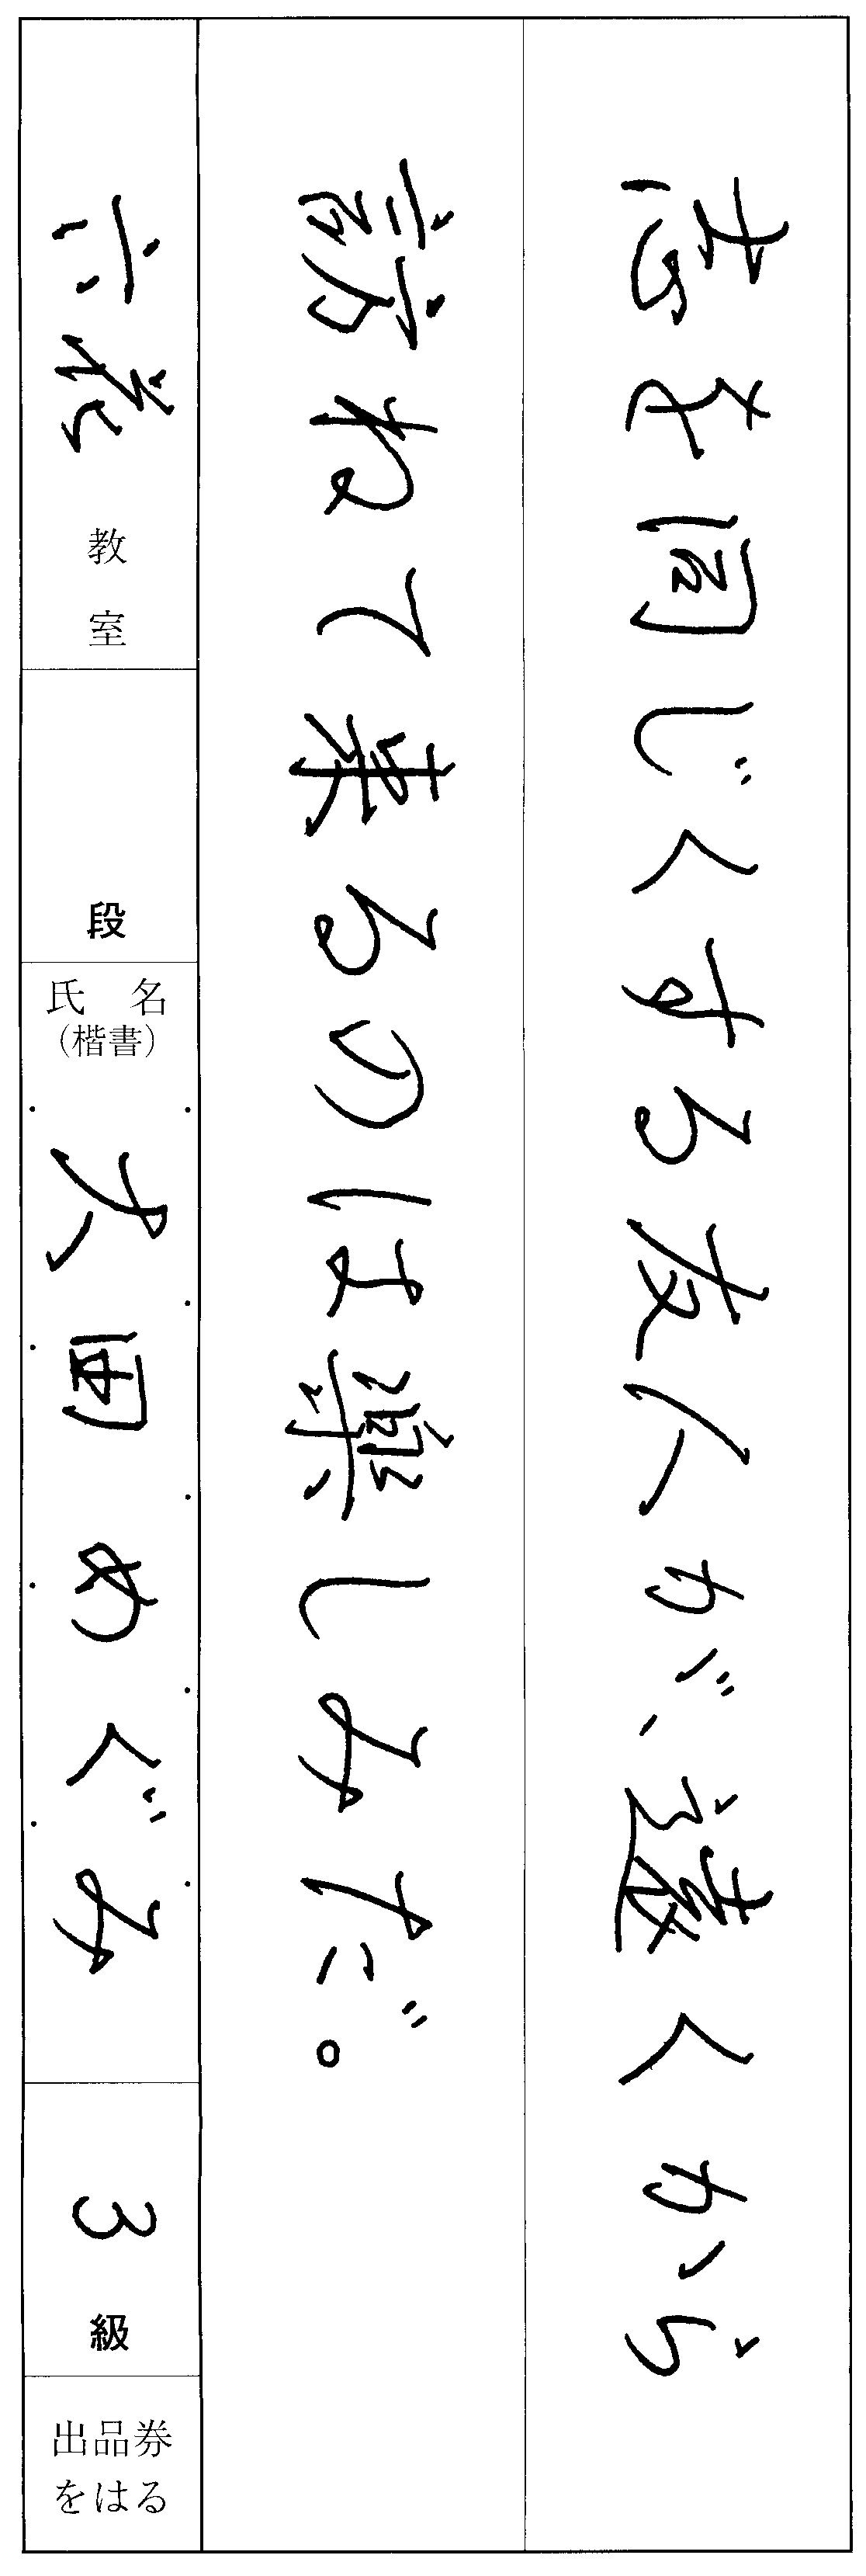 志を同じくする友人が、遠くから
訪ねて来るのは楽しみだ。
六花 教室
段
氏名
(楷書)
大田 めぐみ
3 級
出品券
をはる